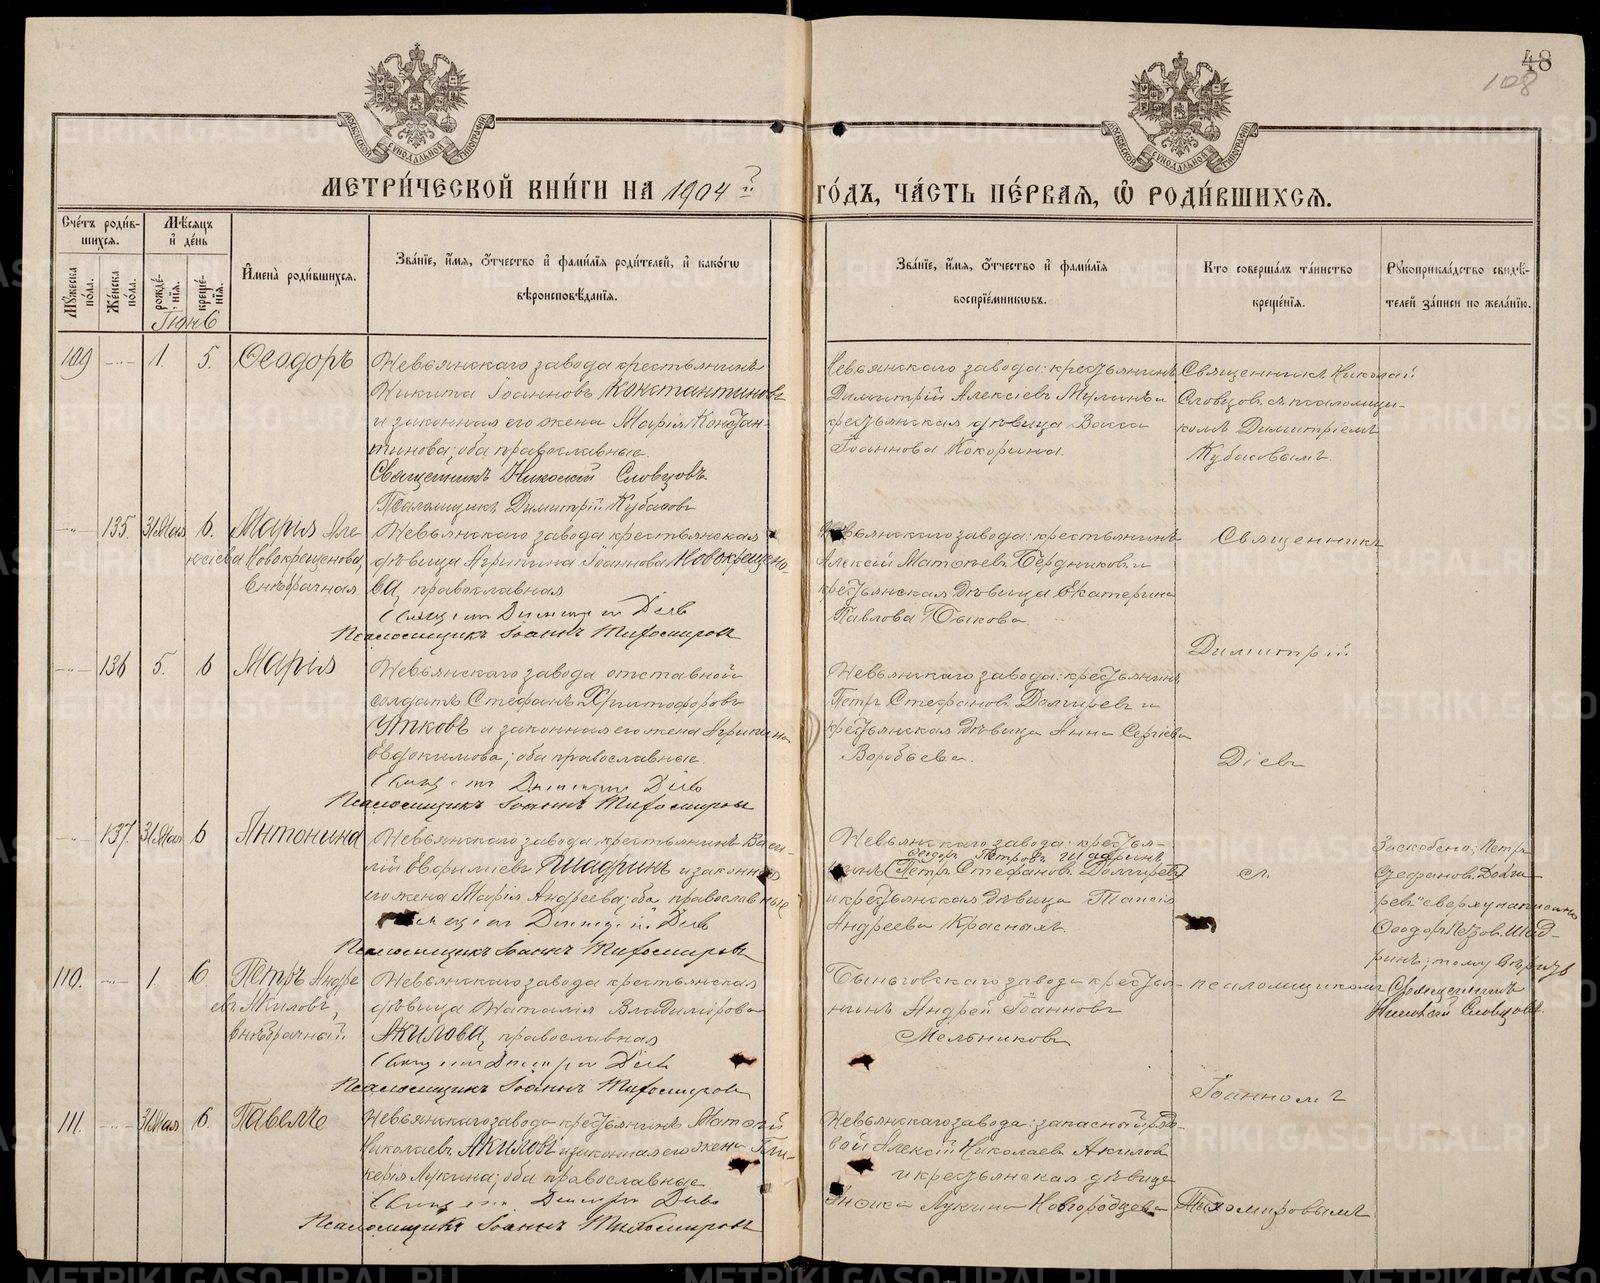 48
108
МЕТРИ́ЧЕСКОЙ КНИ́ГИ НА 1904 ГО́ДЪ, ЧА́СТЬ ПЕ́РВАЯ, Ѡ РОДИ́ВШИХСЯ.
Сче́тъ роди́вшихся.
Мѣ́сяцъ и де́нь
Мꙋжеска по́ла.
Же́нска по́ла.
рожде́нїя.
креще́нїя.
И҆мена̀ роди́вшихся.
Зва́нїе, и҆́мя, ѻ҆́тчество и҆ фами́лїя роди́телей, и҆ како́гѡ
вѣроисповѣ́данїя.
Зва́нїе, и҆́мя, ѻ҆́тчество и҆ фами́лїя
воспрїе́мникѡвъ.
Кто соверша́лъ та́инство
креще́нїя.
Рꙋкоприкла́дство свидѣ́-
телей за́писи по жела́нїю.
Іюнь
109 1. 5. Ѳеодоръ
Невьянскаго завода крестьянинъ
Никита Іоанновъ Константиновъ
и законная его жена Марія Констан-
тинова; оба православные.
Священникъ Николай Словцовъ
Псаломщикъ Димитрій Кубасовъ
Невьянскаго завода: крестьянинъ
Димитрій Алексіевъ Мулинъ и
крестьянская дѣвица Васса
Іоаннова Кокорина.
Священникъ Николай
Словцовъ съ псаломщи-
комъ Димитріемъ
Кубасовымъ.
135. 31 Мая 6. Марія Але-
ксіева Новокрещенова,
внѣбрачная
Невьянскаго завода крестьянская
дѣвица Агрипина Іоаннова Новокрещено-
ва, православная
Димитрій Діевъ
Псаломщикъ Іоаннъ Тихомировъ
Невьянскаго завода: крестьянинъ
Алексій Матѳіевъ Бердниковъ и
крестьянская дѣвица Екатерина
Павлова Быкова.
Священникъ
136 5. 6 Марія
Невьянскаго завода отставной
солдатъ Стефанъ Христофоровъ
Утковъ и законная его жена Агрипина
Евдокимова; оба православные.
Димитрій Діевъ
Псаломщикъ Іоаннъ Тихомировъ
Невьянскаго завода: крестьянинъ
Петръ Стефановъ Долгиревъ и
крестьянская дѣвица Анна Сергіева
Воробьева.
Димитрій
Діевъ
137. 31 Мая 6 Антонина
Невьянскаго завода крестьянинъ Васи-
лій Шадринъ и законная
его жена Марія Андреева; оба православные
Димитрій Діевъ
Псаломщикъ Іоаннъ Тихомировъ
Невьянскаго завода: крестья-
Ѳеодоръ Петровъ Шадринъ
нинъ (Петръ Стефановъ Долгиревъ)
и крестьянская дѣвица Таисія
Андреева Красныхъ.
съ
Заскоблено; Петръ
Стефановъ Долги-
ревъ" сверху написано
Ѳеодоръ Петровъ Шад-
ринъ; тому вѣрить
Священникъ
Николай Словцовъ.
110. 1. 6. Петръ Андре-
евъ Акиловъ,
внѣбрачный.
Невьянскаго завода крестьянская
дѣвица Наталія Владимірова
Акилова, православная
Діевъ
Псаломщикъ Іоаннъ Тихомировъ
Быньговскаго завода крестья-
нинъ Андрей Іоанновъ
Мельниковъ
псаломщикомъ
Іоанномъ
111. 31 Мая 6. Павелъ
Невьянскаго завода крестьянинъ Матѳій
Николаевъ Акиловъ и законная его жена Гли-
керія Лукина; оба православные
Діевъ
Псаломщикъ Іоаннъ Тихомировъ
Невьянскаго завода: запасной рядо-
вой Алексій Николаевъ Акиловъ
и крестьянская дѣвица
Лукина Новгородцева
Тихомировымъ
METRIKI.GASO-URAL.RU